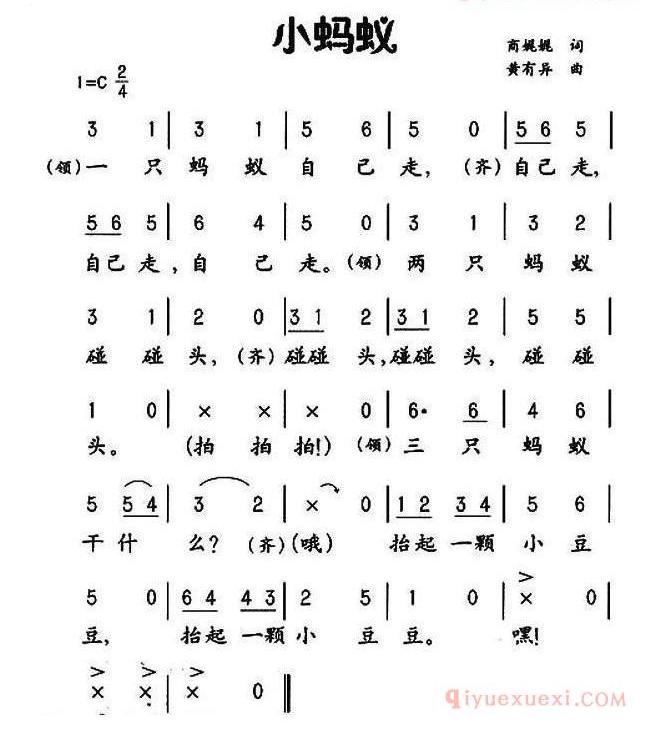 小蚂蚁
商娓娓 词
1=C 2/4
黄有异 曲
3 1 | 3 1 | 5 6 | 5 0 | 5 6 5 |
(领)一 只 蚂 蚁 自 己 走, (齐)自己走,
5 6 5 | 6 4 | 5 0 | 3 1 | 3 2 |
自己走, 自 己 走。(领) 两 只 蚂 蚁
3 1 | 2 0 | 3 1 2 | 3 1 2 | 5 5 |
碰 碰 头, (齐)碰碰 头,碰碰 头, 碰 碰
1 0 | × × | × 0 | 6· 6 | 4 6 |
头。 (拍 拍 拍!) (领)三 只 蚂 蚁
5 5 4 | 3 2 | × 0 | 1 2 3 4 | 5 6 |
干 什 么? (齐)(哦) 抬起 一颗 小 豆
5 0 | 6 4 4 3 | 2 5 | 1 0 | × 0 |
豆, 抬起 一颗 小 豆 豆。 嘿!
× × | × 0 ‖
qiyuexuexi.com